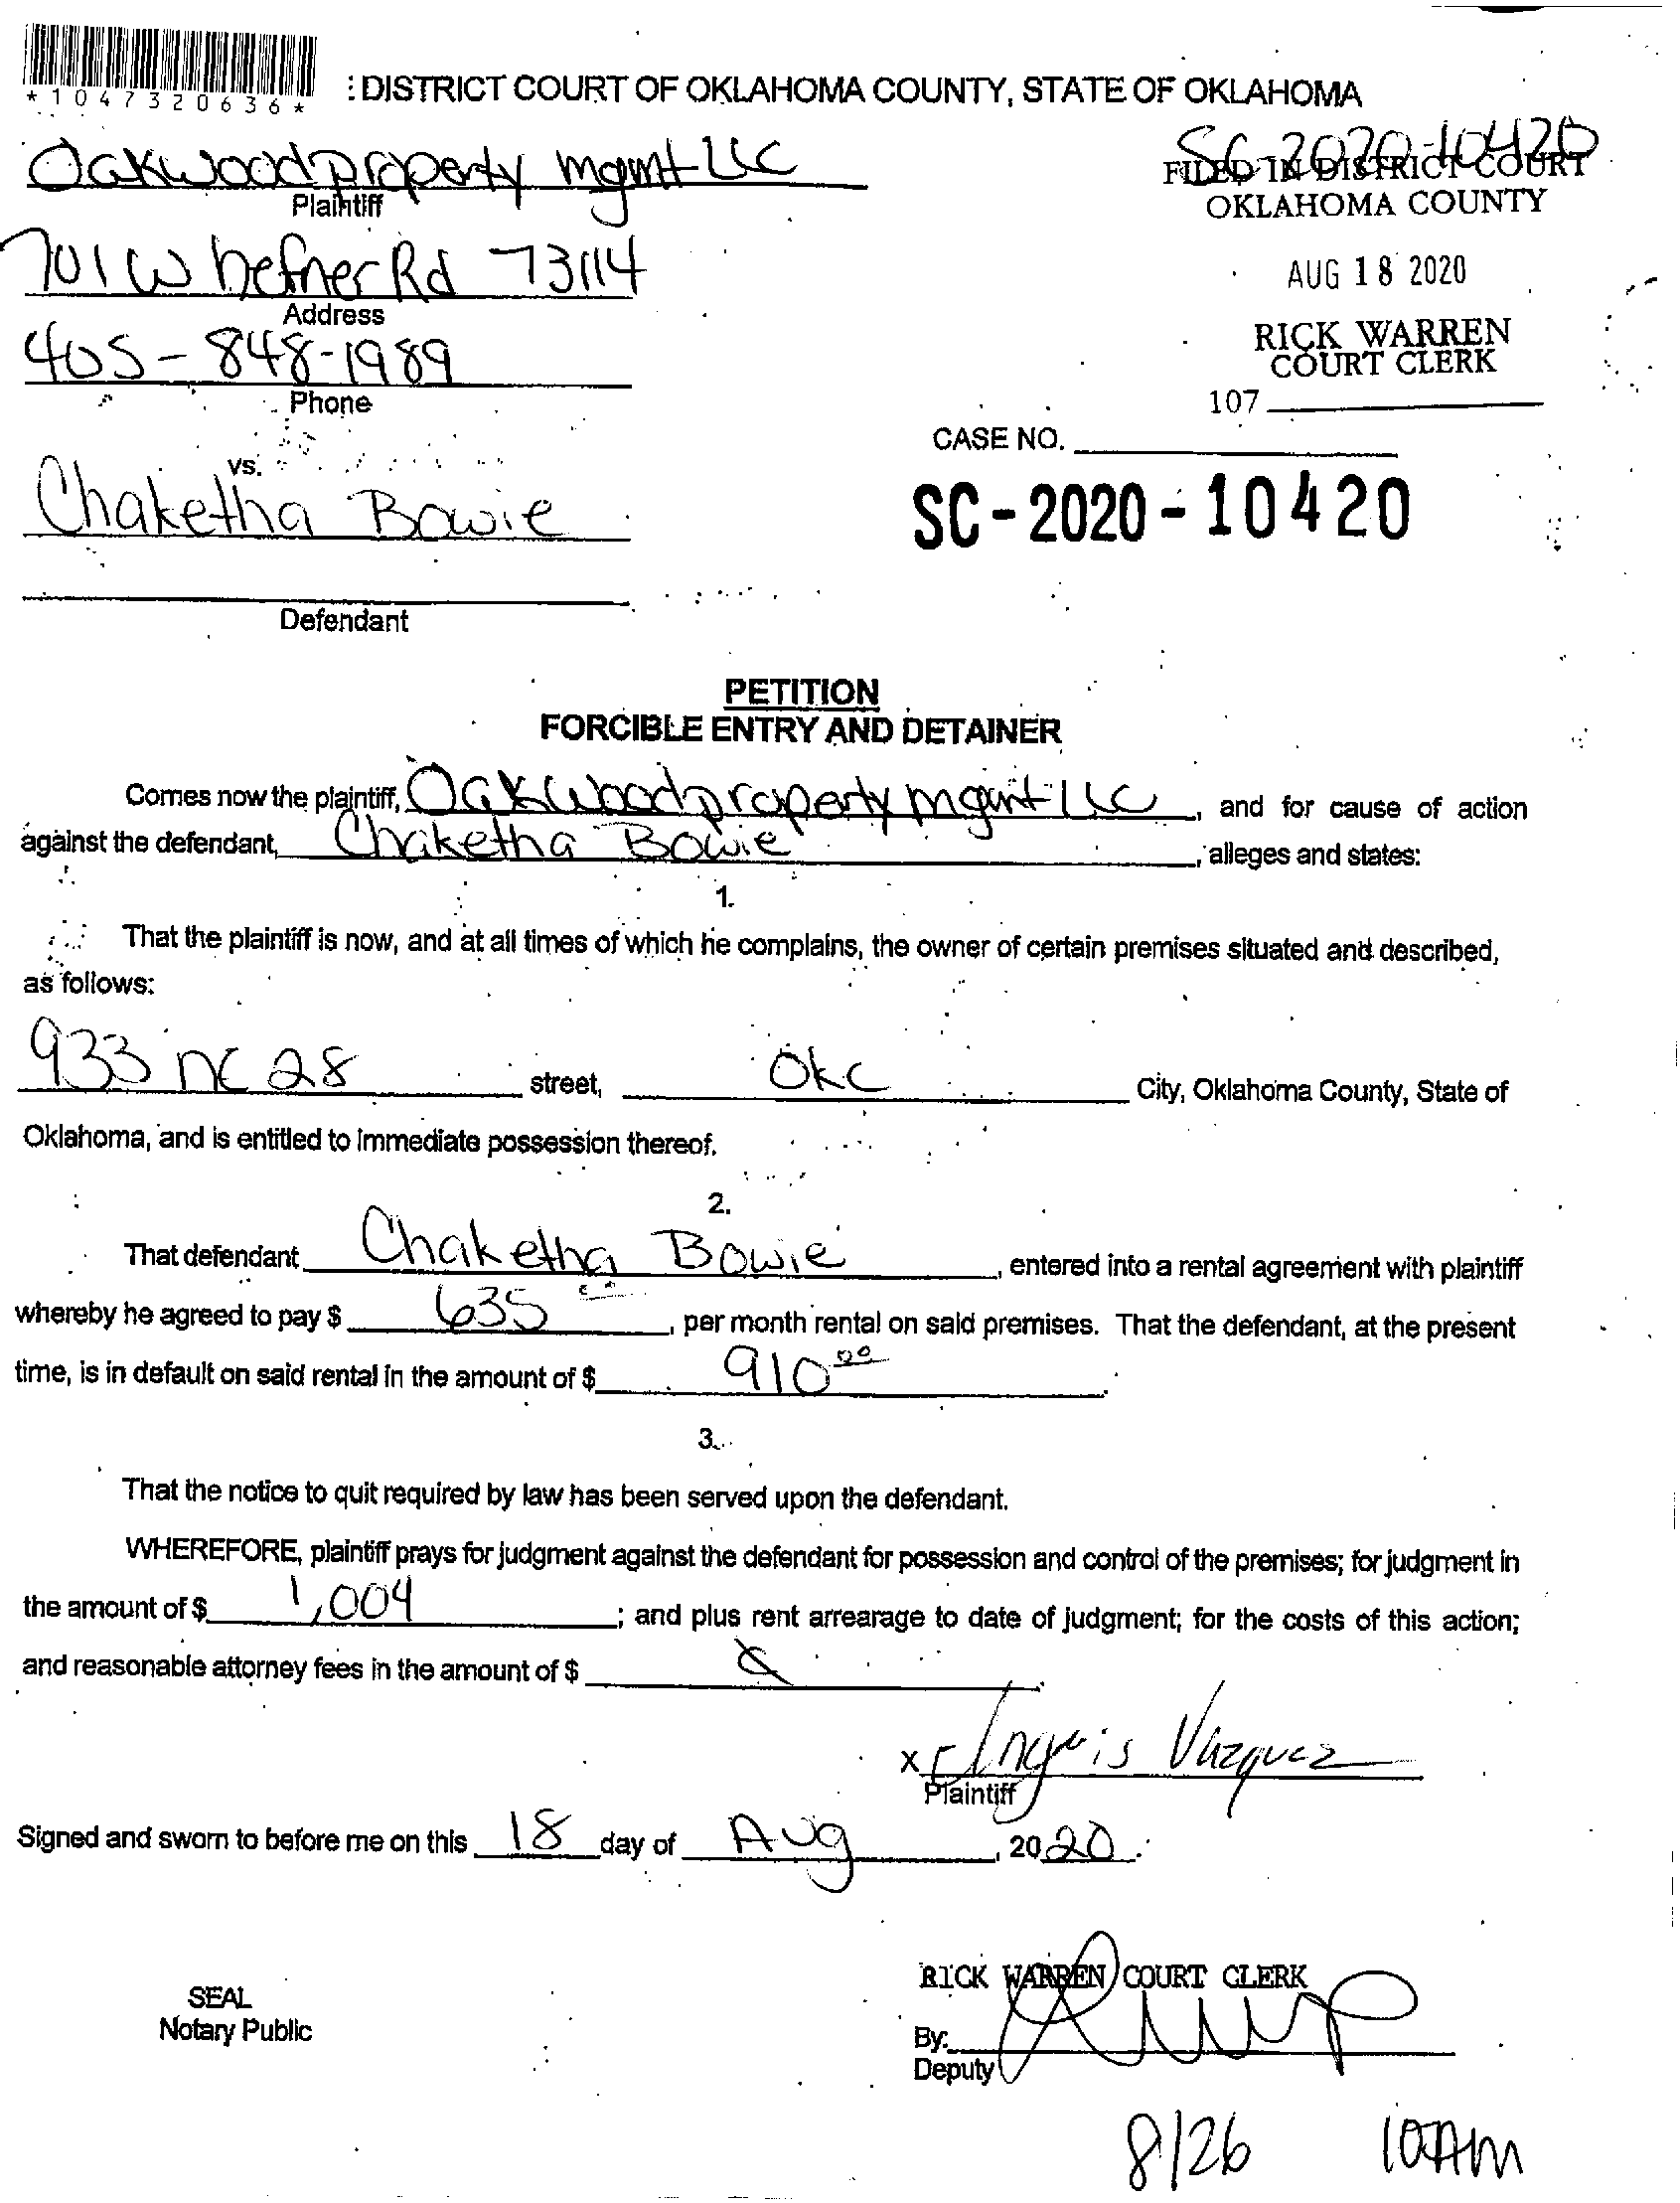 *1047320636*
: DISTRICT COURT OF OKLAHOMA COUNTY, STATE OF OKLAHOMA
Oakwood property mgmt LLC
Plaintiff
SC-2020-10420
FILED IN DISTRICT COURT
OKLAHOMA COUNTY
701 W hefner Rd 73114
Address
AUG 18 2020
405-848-1989
Phone
RICK WARREN
COURT CLERK
107
CASE NO.
vs.
Chaketha Bowie
SC-2020-10420
Defendant
PETITION
FORCIBLE ENTRY AND DETAINER
Comes now the plaintiff, Oakwood property mgmt LLC, and for cause of action
against the defendant, Chaketha Bowie, alleges and states:
1.
That the plaintiff is now, and at all times of which he complains, the owner of certain premises situated and described,
as follows:
933 NE 28 street, OKC City, Oklahoma County, State of
Oklahoma, and is entitled to immediate possession thereof.
2.
That defendant Chaketha Bowie, entered into a rental agreement with plaintiff
whereby he agreed to pay $ 635, per month rental on said premises. That the defendant, at the present
time, is in default on said rental in the amount of $ 910 00.
3.
That the notice to quit required by law has been served upon the defendant.
WHEREFORE, plaintiff prays for judgment against the defendant for possession and control of the premises; for judgment in
the amount of $ 1,004; and plus rent arrearage to date of judgment; for the costs of this action;
and reasonable attorney fees in the amount of $
x Vazquez
Plaintiff
Signed and sworn to before me on this 18 day of Aug, 2020.
RICK WARREN COURT CLERK
SEAL
Notary Public
By:
Deputy
8/26 10AM